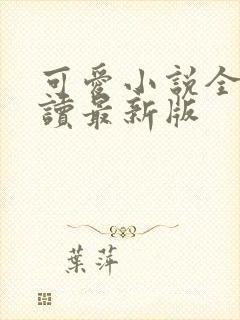 可愛小説全
讀最新版
葉萍